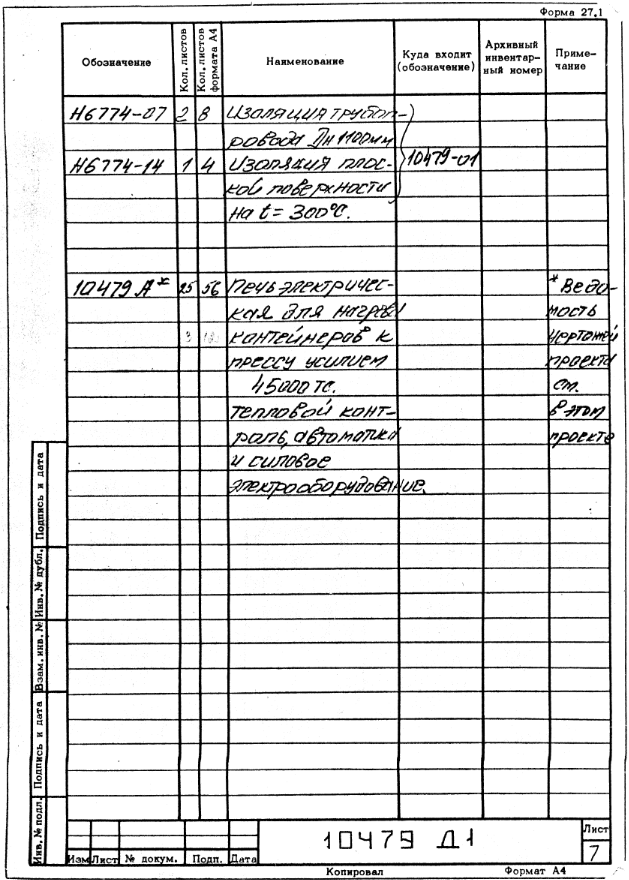 Форма 27.1
Обозначение
Кол. листов
Кол. листов формата А4
Наименование
Куда входит (обозначение)
Архивный инвентар-ный номер
Приме-чание
Н6774-07 2 8 Изоляция трубоп-
ровода Дн 1100мм
10479-01
Н6774-14 1 4 Изоляция плос-
кой поверхности
на t = 300°С.
10479 А* 25 56 Печь электричес- * Ведо-
кая для нагрева мость
контейнеров к чертожей
прессу усилием проекта
45000 тс. см.
тепловой конт- в этом
роль, автоматика проекте
и силовое
электрооборудование.
Подпись и дата
Инв. № дубл.
Взам. инв. №
Подпись и дата
Инв. № подл.
10479 Д1
Лист
7
Изм Лист № докум. Подп. Дата
Копировал Формат А4